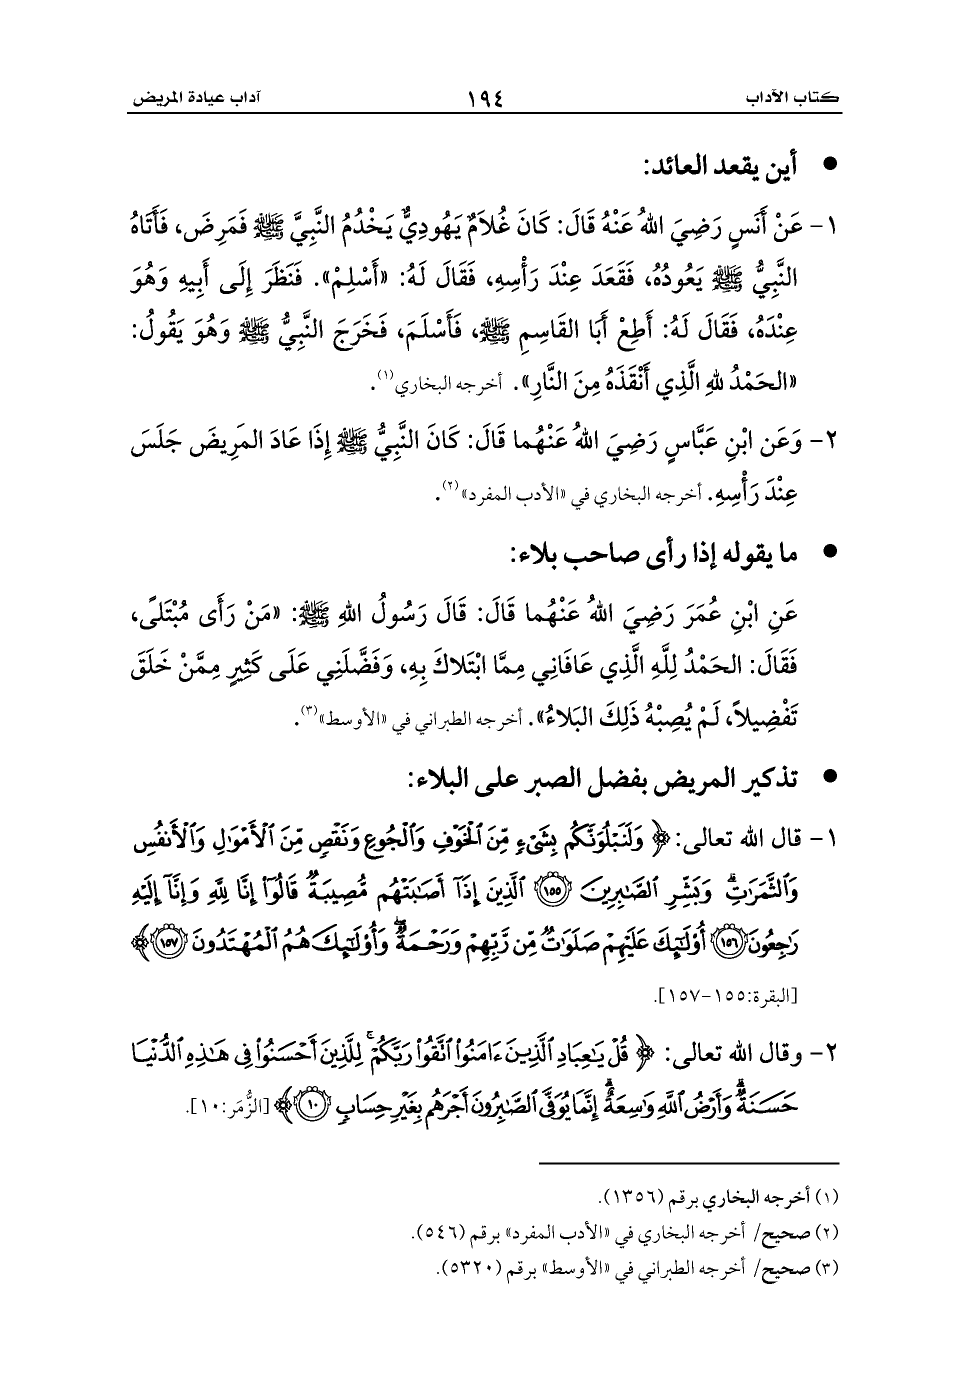 كتاب الآداب ١٩٤ آداب عيادة المريض
● أين يقعد العائد:
١- عَنْ أَنَسٍ رَضِيَ اللهُ عَنْهُ قَالَ: كَانَ غُلَامٌ يَهُودِيٌّ يَخْدُمُ النَّبِيَّ ﷺ فَمَرِضَ، فَأَتَاهُ
النَّبِيُّ ﷺ يَعُودُهُ، فَقَعَدَ عِنْدَ رَأْسِهِ، فَقَالَ لَهُ: «أَسْلِمْ». فَنَظَرَ إِلَى أَبِيهِ وَهُوَ
عِنْدَهُ، فَقَالَ لَهُ: أَطِعْ أَبَا القَاسِمِ ﷺ، فَأَسْلَمَ، فَخَرَجَ النَّبِيُّ ﷺ وَهُوَ يَقُولُ:
«الحَمْدُ للهِ الَّذِي أَنْقَذَهُ مِنَ النَّارِ». أخرجه البخاري(١).
٢- وَعَنِ ابْنِ عَبَّاسٍ رَضِيَ اللهُ عَنْهُما قَالَ: كَانَ النَّبِيُّ ﷺ إِذَا عَادَ المَرِيضَ جَلَسَ
عِنْدَ رَأْسِهِ. أخرجه البخاري في «الأدب المفرد»(٢).
● ما يقوله إذا رأى صاحب بلاء:
عَنِ ابْنِ عُمَرَ رَضِيَ اللهُ عَنْهُما قَالَ: قَالَ رَسُولُ اللهِ ﷺ: «مَنْ رَأَى مُبْتَلًى،
فَقَالَ: الحَمْدُ لِلَّهِ الَّذِي عَافَانِي مِمَّا ابْتَلاكَ بِهِ، وَفَضَّلَنِي عَلَى كَثِيرٍ مِمَّنْ خَلَقَ
تَفْضِيلاً، لَمْ يُصِبْهُ ذَلِكَ البَلاءُ». أخرجه الطبراني في «الأوسط»(٣).
● تذكير المريض بفضل الصبر على البلاء:
١- قال الله تعالى: ﴿وَلَنَبۡلُوَنَّكُم بِشَيۡءٖ مِّنَ ٱلۡخَوۡفِ وَٱلۡجُوعِ وَنَقۡصٖ مِّنَ ٱلۡأَمۡوَٰلِ وَٱلۡأَنفُسِ
وَٱلثَّمَرَٰتِۗ وَبَشِّرِ ٱلصَّٰبِرِينَ ١٥٥ ٱلَّذِينَ إِذَآ أَصَٰبَتۡهُم مُّصِيبَةٞ قَالُوٓاْ إِنَّا لِلَّهِ وَإِنَّآ إِلَيۡهِ
رَٰجِعُونَ ١٥٦ أُوْلَٰٓئِكَ عَلَيۡهِمۡ صَلَوَٰتٞ مِّن رَّبِّهِمۡ وَرَحۡمَةٞۖ وَأُوْلَٰٓئِكَ هُمُ ٱلۡمُهۡتَدُونَ ١٥٧﴾
[البقرة:١٥٥-١٥٧].
٢- وقال الله تعالى: ﴿قُلۡ يَٰعِبَادِ ٱلَّذِينَ ءَامَنُواْ ٱتَّقُواْ رَبَّكُمۡۚ لِلَّذِينَ أَحۡسَنُواْ فِي هَٰذِهِ ٱلدُّنۡيَا
حَسَنَةٞۗ وَأَرۡضُ ٱللَّهِ وَٰسِعَةٌۗ إِنَّمَا يُوَفَّى ٱلصَّٰبِرُونَ أَجۡرَهُم بِغَيۡرِ حِسَابٖ ١٠﴾ [الزُّمَر:١٠].
(١) أخرجه البخاري برقم (١٣٥٦).
(٢) صحيح/ أخرجه البخاري في «الأدب المفرد» برقم (٥٤٦).
(٣) صحيح/ أخرجه الطبراني في «الأوسط» برقم (٥٣٢٠).